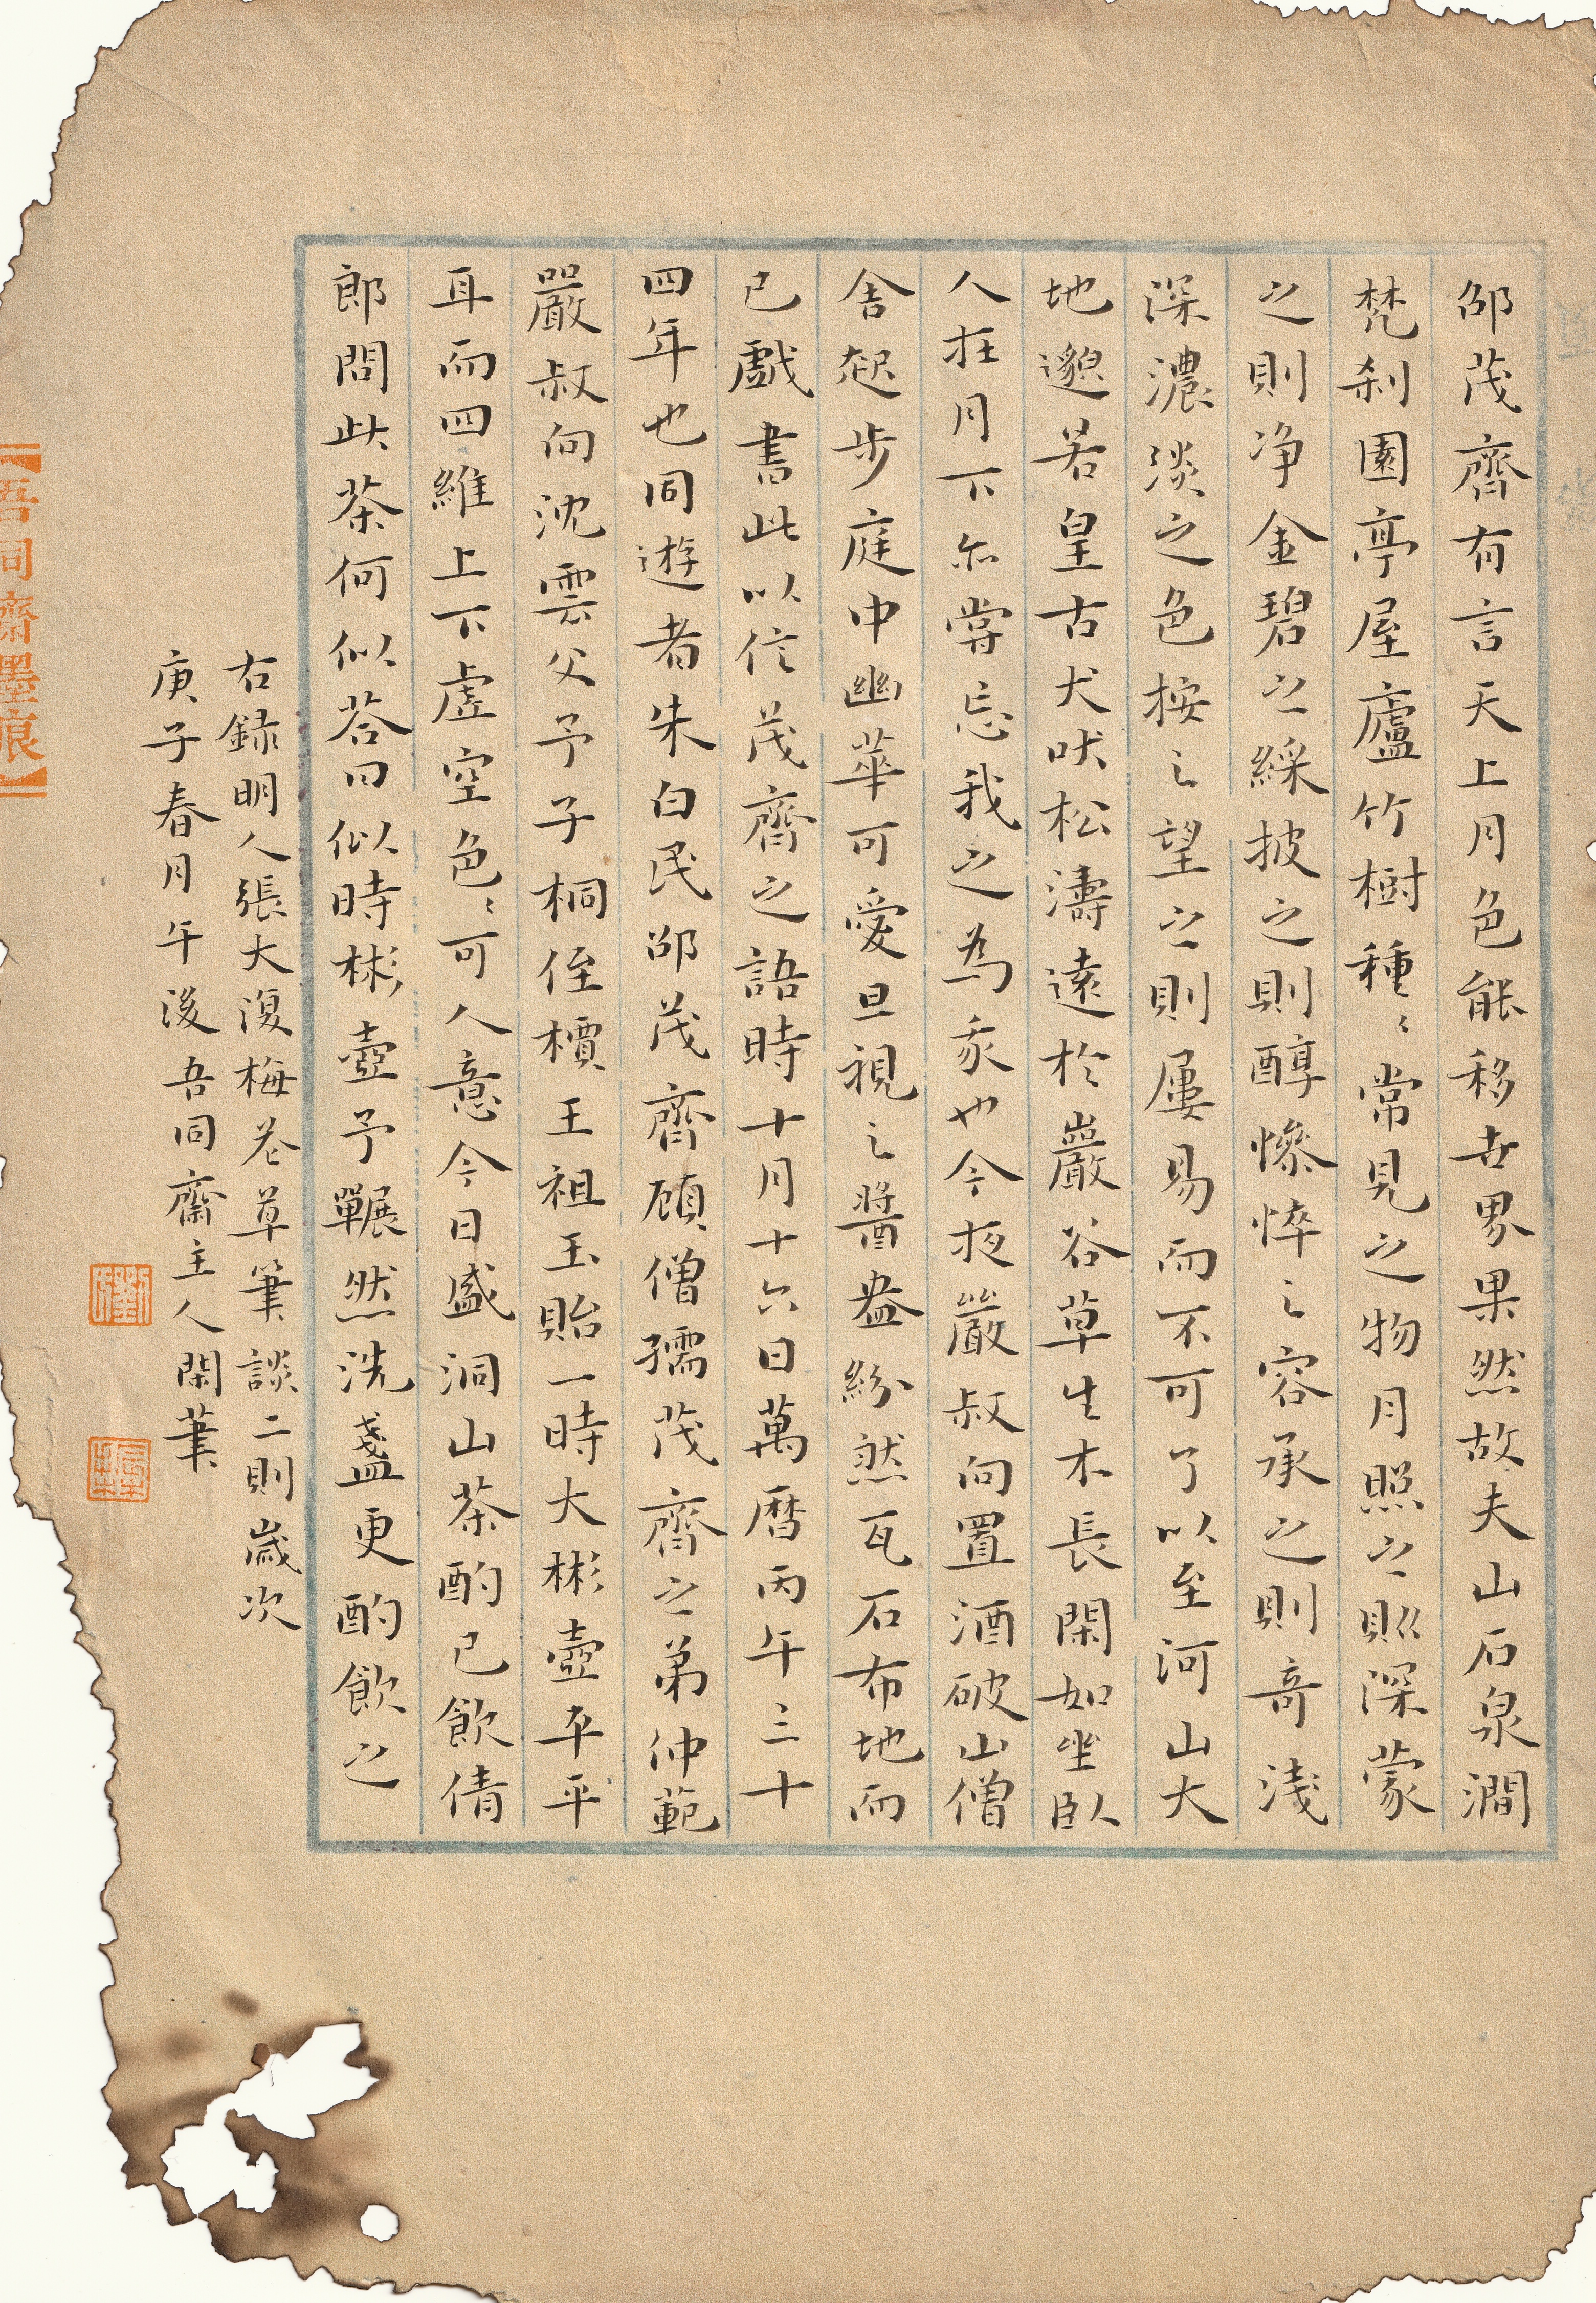 邵茂齊有言天上月色能移世界果然故夫山石泉澗
梵刹園亭屋廬竹樹種〻常見之物月照之則深蒙
之則净金碧之綵披之則醇慘悴之容承之則奇淺
深濃淡之色按之望之則屢易而不可了以至河山大
地邈若皇古犬吠松濤遠於巖谷草生木長閑如坐臥
人在月下亦嘗忘我之為我也今夜嚴叔向置酒破山僧
舍起步庭中幽華可愛旦視之醬盎紛然瓦石布地而
已戲書此以信茂齊之語時十月十六日萬曆丙午三十
四年也同遊者朱白民邵茂齊顧僧孺茂齊之弟仲範
嚴叔向沈雲父予子桐侄檟王祖玉貽一時大彬壺平平
耳而四維上下虛空色〻可人意今日盛洞山茶酌已飲倩
郎問此茶何似荅曰似時彬壺予囅然洗盞更酌飲之
右錄明人張大復梅花草筆談二則歲次
庚子春月午後吾同齋主人閑筆
【吾同齋墨痕】